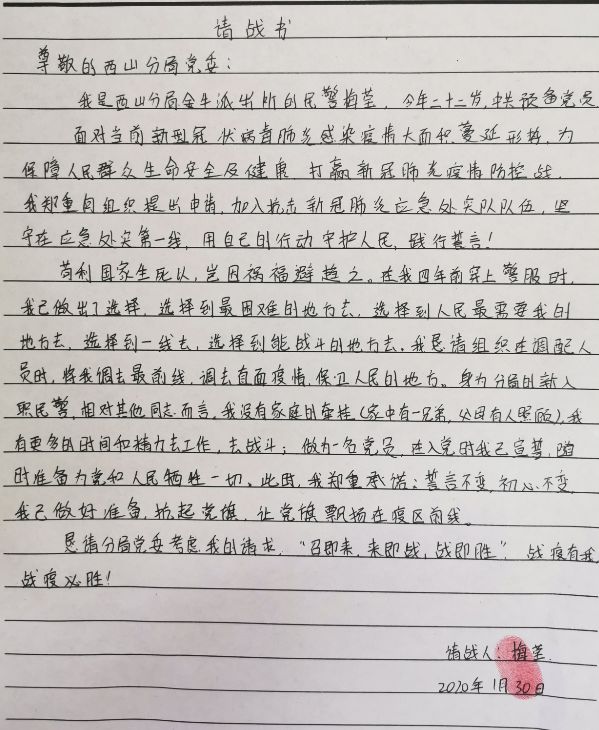 请战书
尊敬的西山分局党委：
我是西山分局金牛派出所的民警梅莹，今年二十二岁，中共预备党员
面对当前新型冠状病毒肺炎感染疫情大面积蔓延形势，为
保障人民群众生命安全及健康，打赢新冠肺炎疫情防控战，
我郑重向组织提出申请，加入抗击新冠肺炎应急处突队队伍，坚
守在应急处突第一线，用自己的行动守护人民，践行誓言！
苟利国家生死以，岂因祸福避趋之。在我四年前穿上警服时，
我已做出了选择，选择到最困难的地方去，选择到人民最需要我的
地方去，选择到一线去，选择到能战斗的地方去。我恳请组织在调配人
员时，将我调去最前线，调去直面疫情、保卫人民的地方。身为分局的新入
职民警，相对其他同志而言，我没有家庭的牵挂（家中有一兄弟，父母有人照顾），我
有更多的时间和精力去工作，去战斗；做为一名党员，在入党时我已宣誓，随
时准备为党和人民牺牲一切。此时，我郑重承诺：誓言不变，初心不变，
我已做好准备，抬起党旗，让党旗飘扬在疫区前线。
恳请分局党委考虑我的请求，“召即来，来即战，战即胜”，战疫有我，
战疫必胜！
请战人：梅莹
2020年1月30日